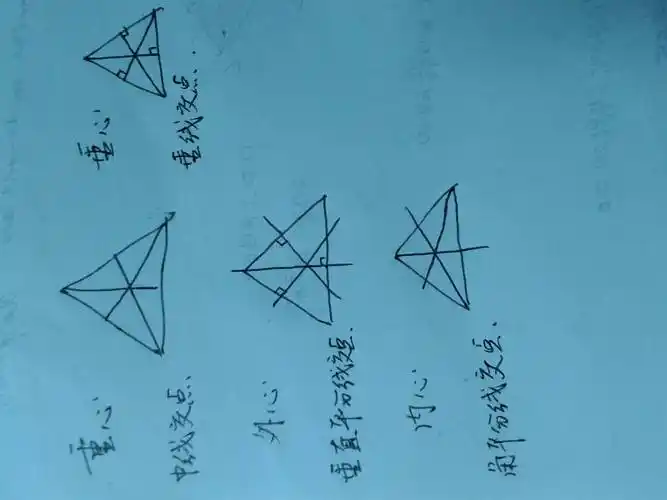 重心
中线交点.
垂心
垂线交点.
外心
垂直平分线交点.
内心
角平分线交点.